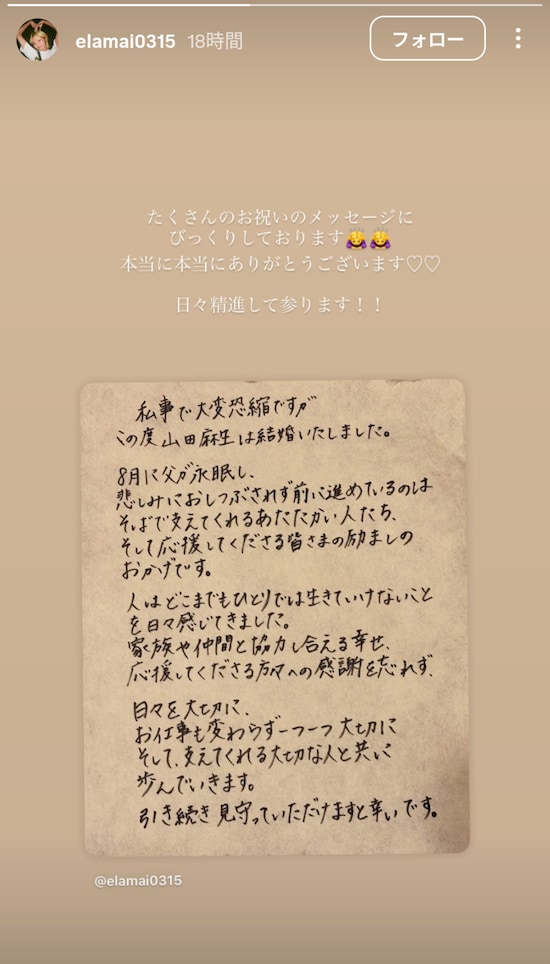 elamai0315 18時間
フォロー
たくさんのお祝いのメッセージに
びっくりしております🙇‍♀️🙇‍♀️
本当に本当にありがとうございます♡♡
日々精進して参ります！！
私事で大変恐縮ですが
この度山田麻生は結婚いたしました。
8月に父が永眠し、
悲しみにおしつぶされず前に進めているのは
そばで支えてくれるあたたかい人たち、
そして応援してくださる皆さまの励ましの
おかげです。
人はどこまでもひとりでは生きていけないこと
を日々感じてきました。
家族や仲間と協力し合える幸せ、
応援してくださる方々への感謝を忘れず、
日々を大切に、
お仕事も変わらず一つ一つ大切に
そして、支えてくれる大切な人と共に
歩んでいきます。
引き続き見守っていただけますと幸いです。
@elamai0315